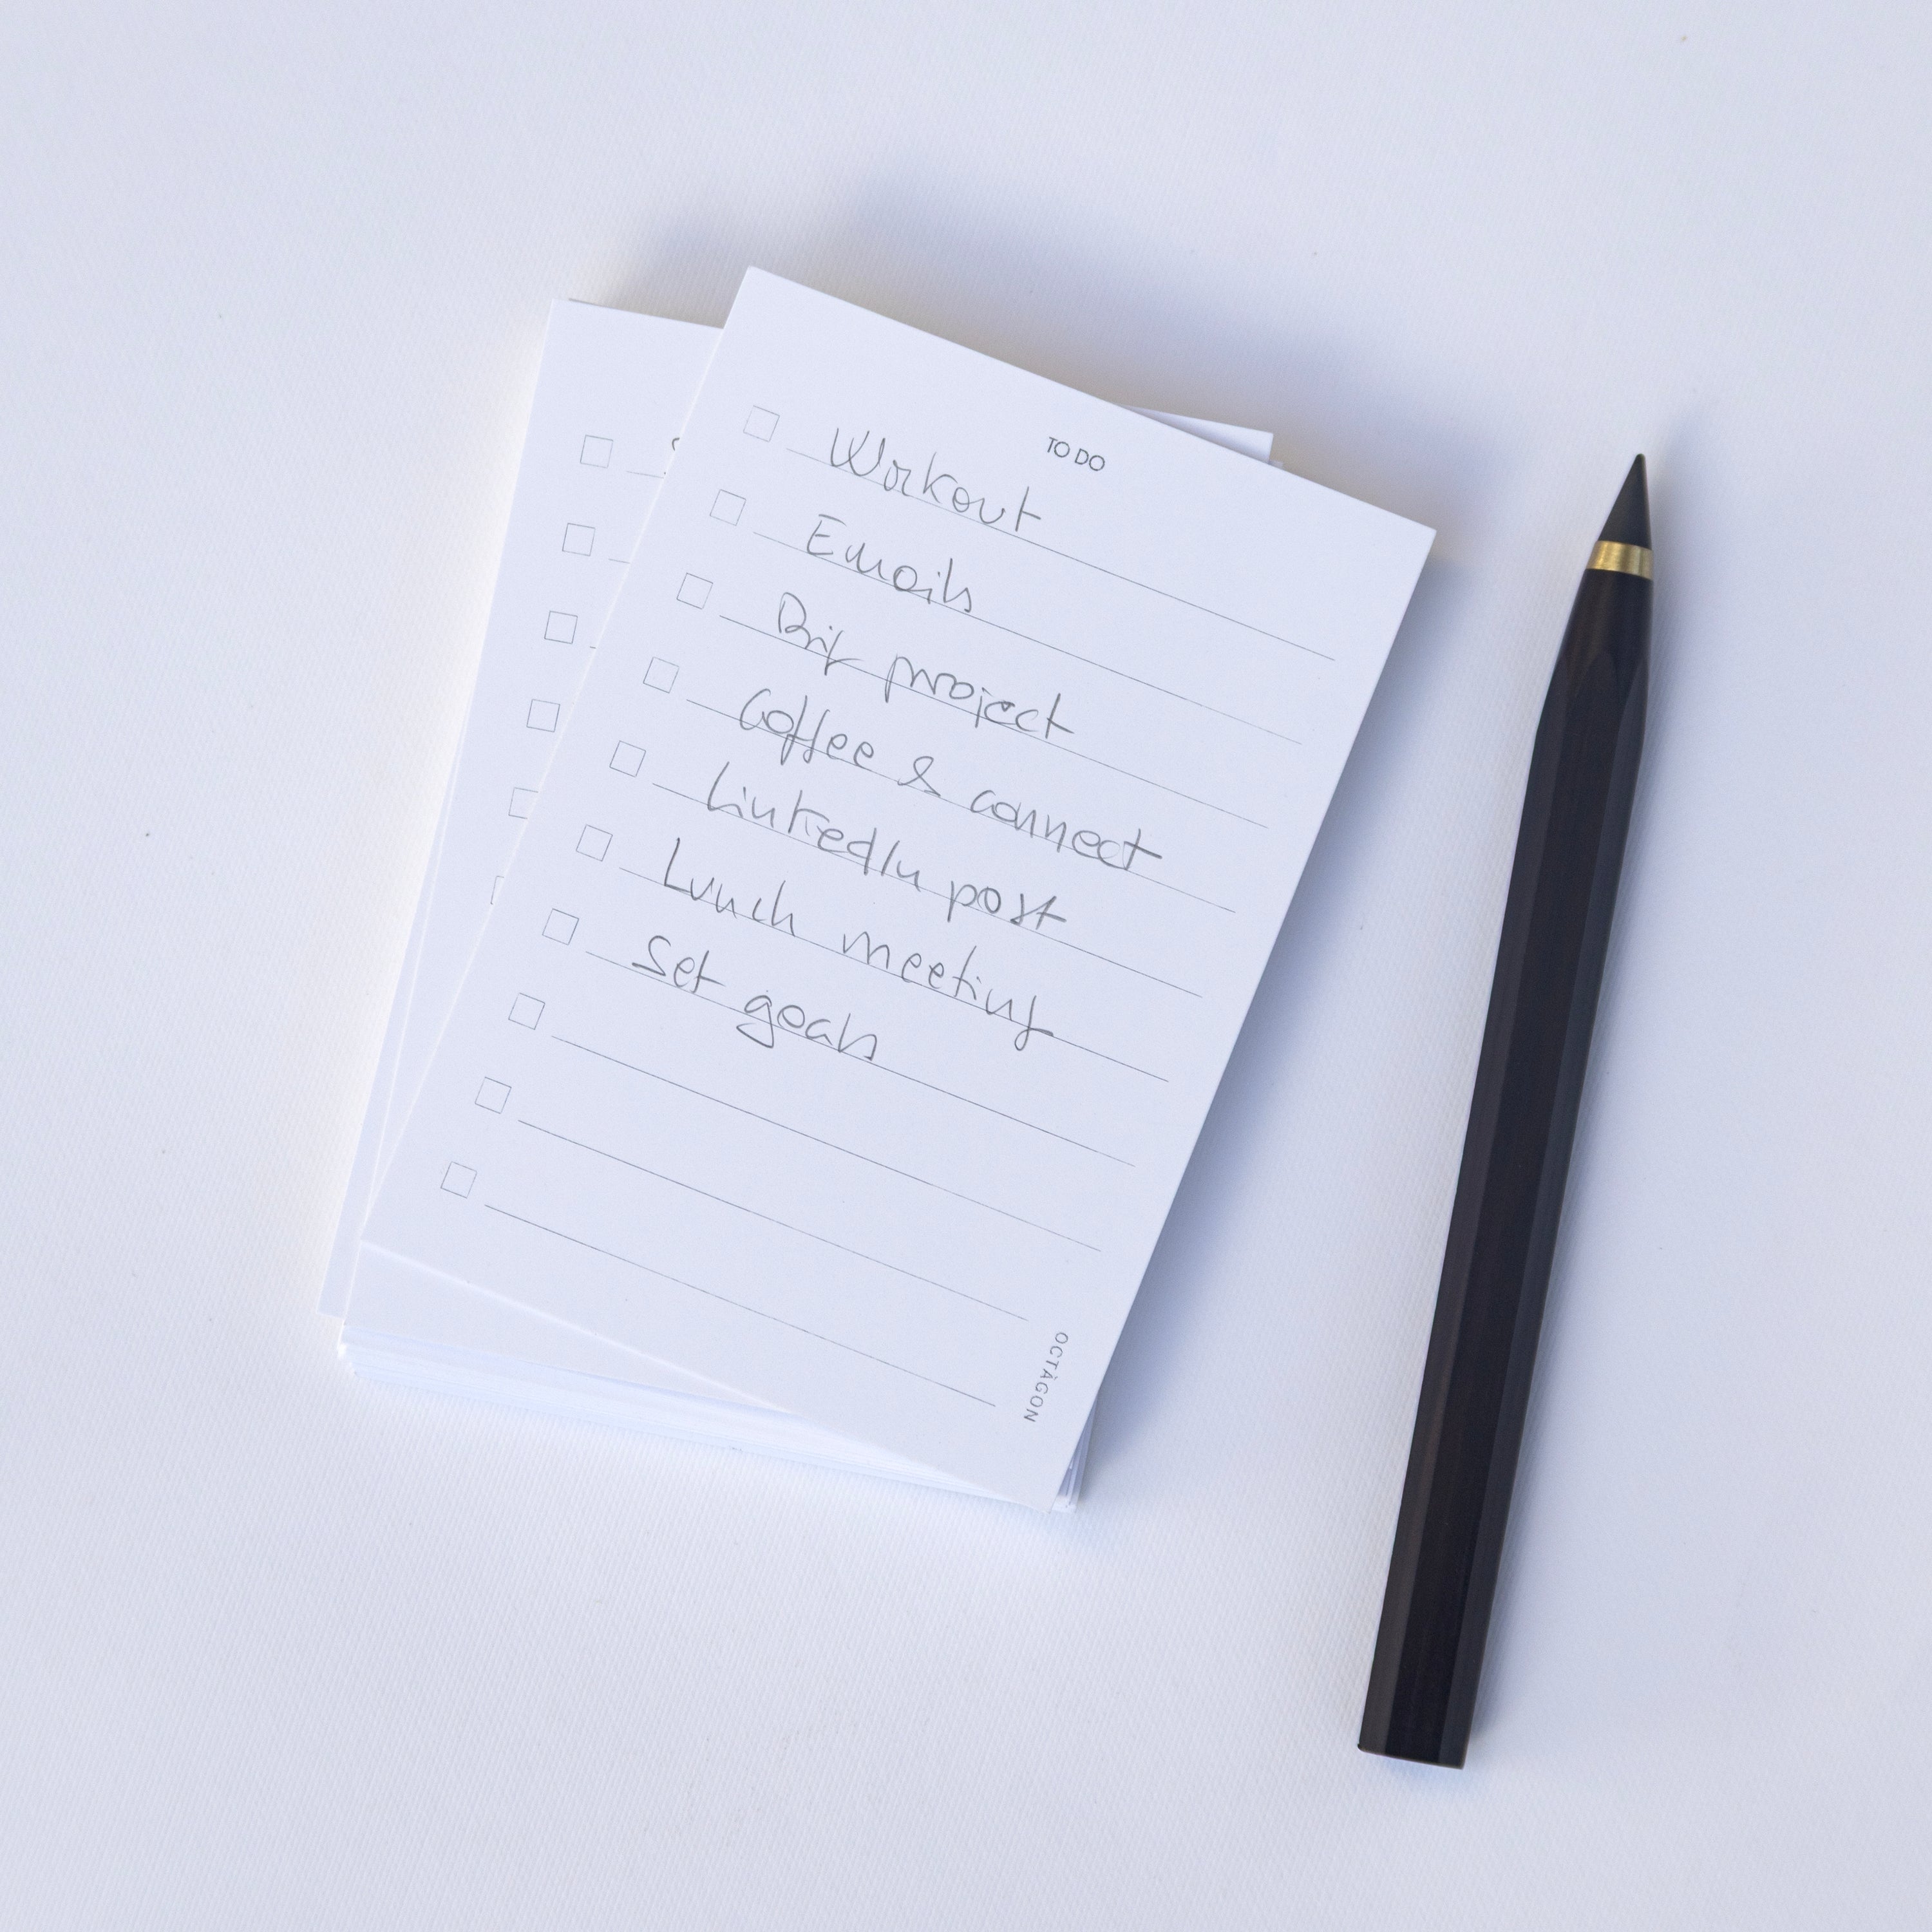 TO DO
Workout
Emails
project
Coffee & connect
LinkedIn post
Lunch meeting
Set goals
OCTÀGON